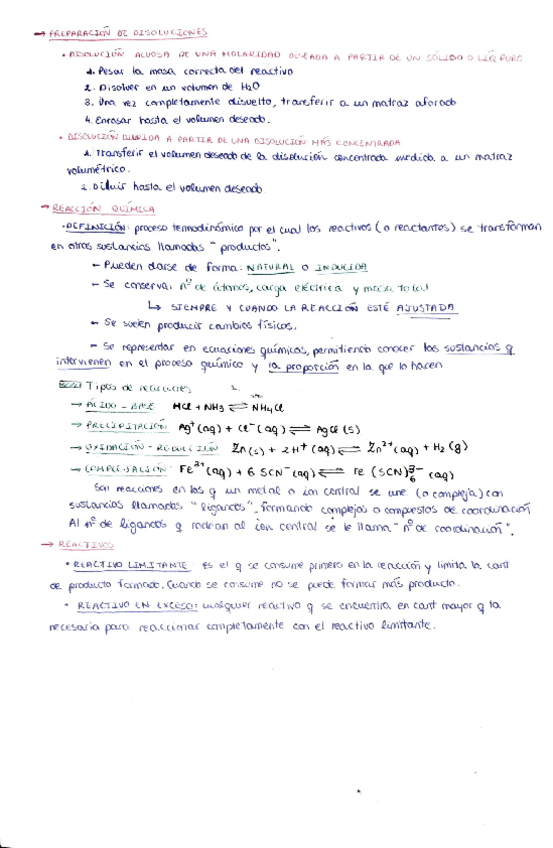 → PREPARACIÓN DE DISOLUCIONES
• DISOLUCIÓN ACUOSA DE UNA MOLARIDAD DESEADA A PARTIR DE UN SÓLIDO O LÍQ PURO
1. Pesar la masa correcta del reactivo
2. Disolver en un volumen de H2O
3. Una vez completamente disuelto, transferir a un matraz aforado
4. Enrasar hasta el volumen deseado.
• DISOLUCIÓN DILUIDA A PARTIR DE UNA DISOLUCIÓN MÁS CONCENTRADA
1. Transferir el volumen deseado de la disolución concentrada medida a un matraz
volumétrico.
2. Diluir hasta el volumen deseado
→ REACCIÓN QUÍMICA
• DEFINICIÓN: proceso termodinámico por el cual los reactivos (o reactantes) se transforman
en otras sustancias llamadas "productos".
– Pueden darse de forma: NATURAL O INDUCIDA
– Se conserva: nº de átomos, carga eléctrica y masa total
↳ SIEMPRE Y CUANDO LA REACCIÓN ESTÉ AJUSTADA
– Se suelen producir cambios físicos.
– Se representar en ecuaciones químicas, permitiendo conocer las sustancias q
intervienen en el proceso químico y la proporción en la que lo hacen
Tipos de reacciones
→ ÁCIDO - BASE HCl + NH3 ⇌ NH4Cl
→ PRECIPITACIÓN: Ag+(aq) + Cl-(aq) ⇌ AgCl (s)
→ OXIDACIÓN - REDUCCIÓN Zn(s) + 2H+ (aq) ⇌ Zn2+(aq) + H2 (g)
→ COMPLEJACIÓN: Fe3+(aq) + 6 SCN-(aq) ⇌ Fe (SCN)6 3- (aq)
Son reacciones en las q un metal o ion central se une (o compleja) con
sustancias llamadas "ligandos", formando complejos o compuestos de coordinación
Al nº de ligandos q rodean al ion central se le llama "nº de coordinación".
→ REACTIVOS
• REACTIVO LIMITANTE es el q se consume primero en la reacción y limita la cant
de producto formado. Cuando se consume no se puede formar más producto.
• REACTIVO EN EXCESO: cualquier reactivo q se encuentra en cant mayor q la
necesaria para reaccionar completamente con el reactivo limitante.